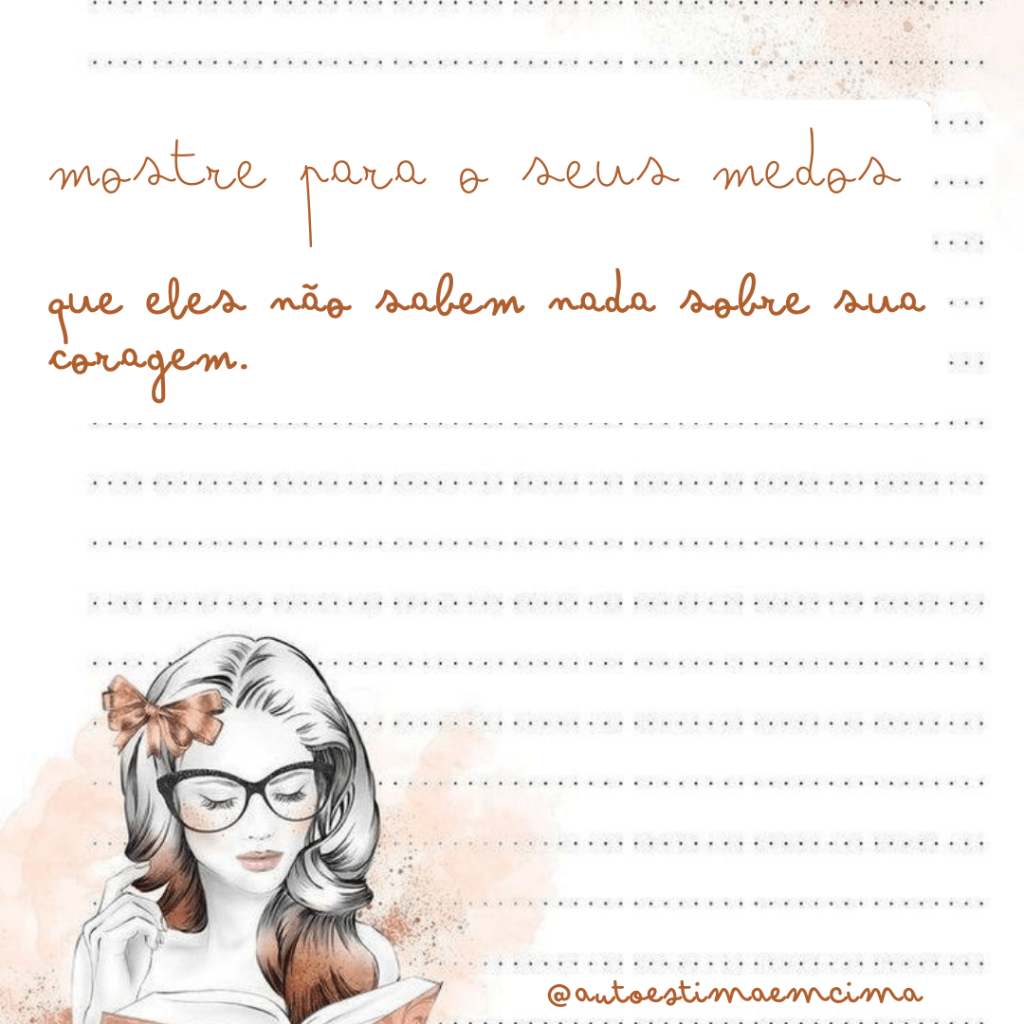 mostre para o seus medos
que eles não sabem nada sobre sua
coragem.
@autoestimaemcima